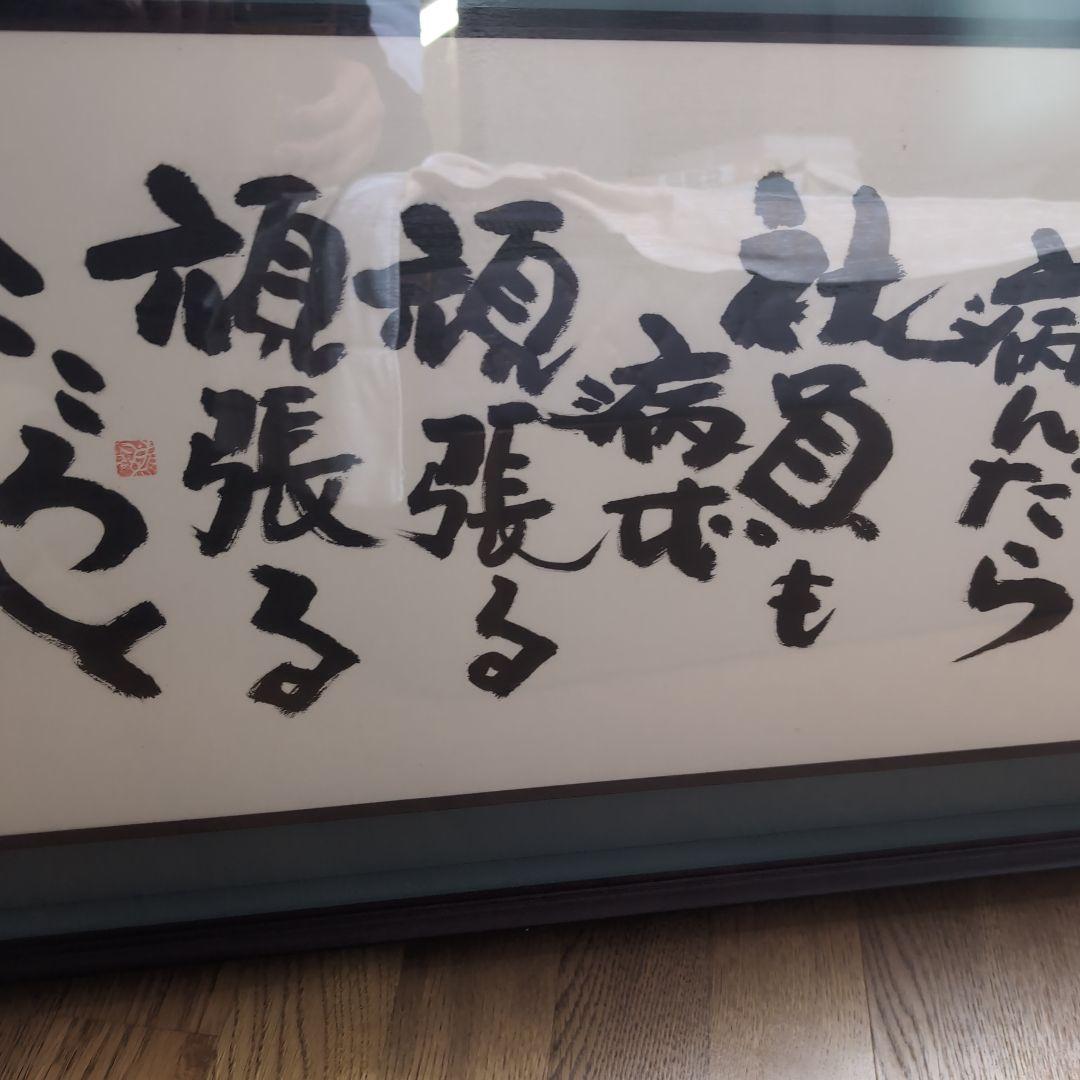 病んだら
社員も
病む
頑張る
頑張る